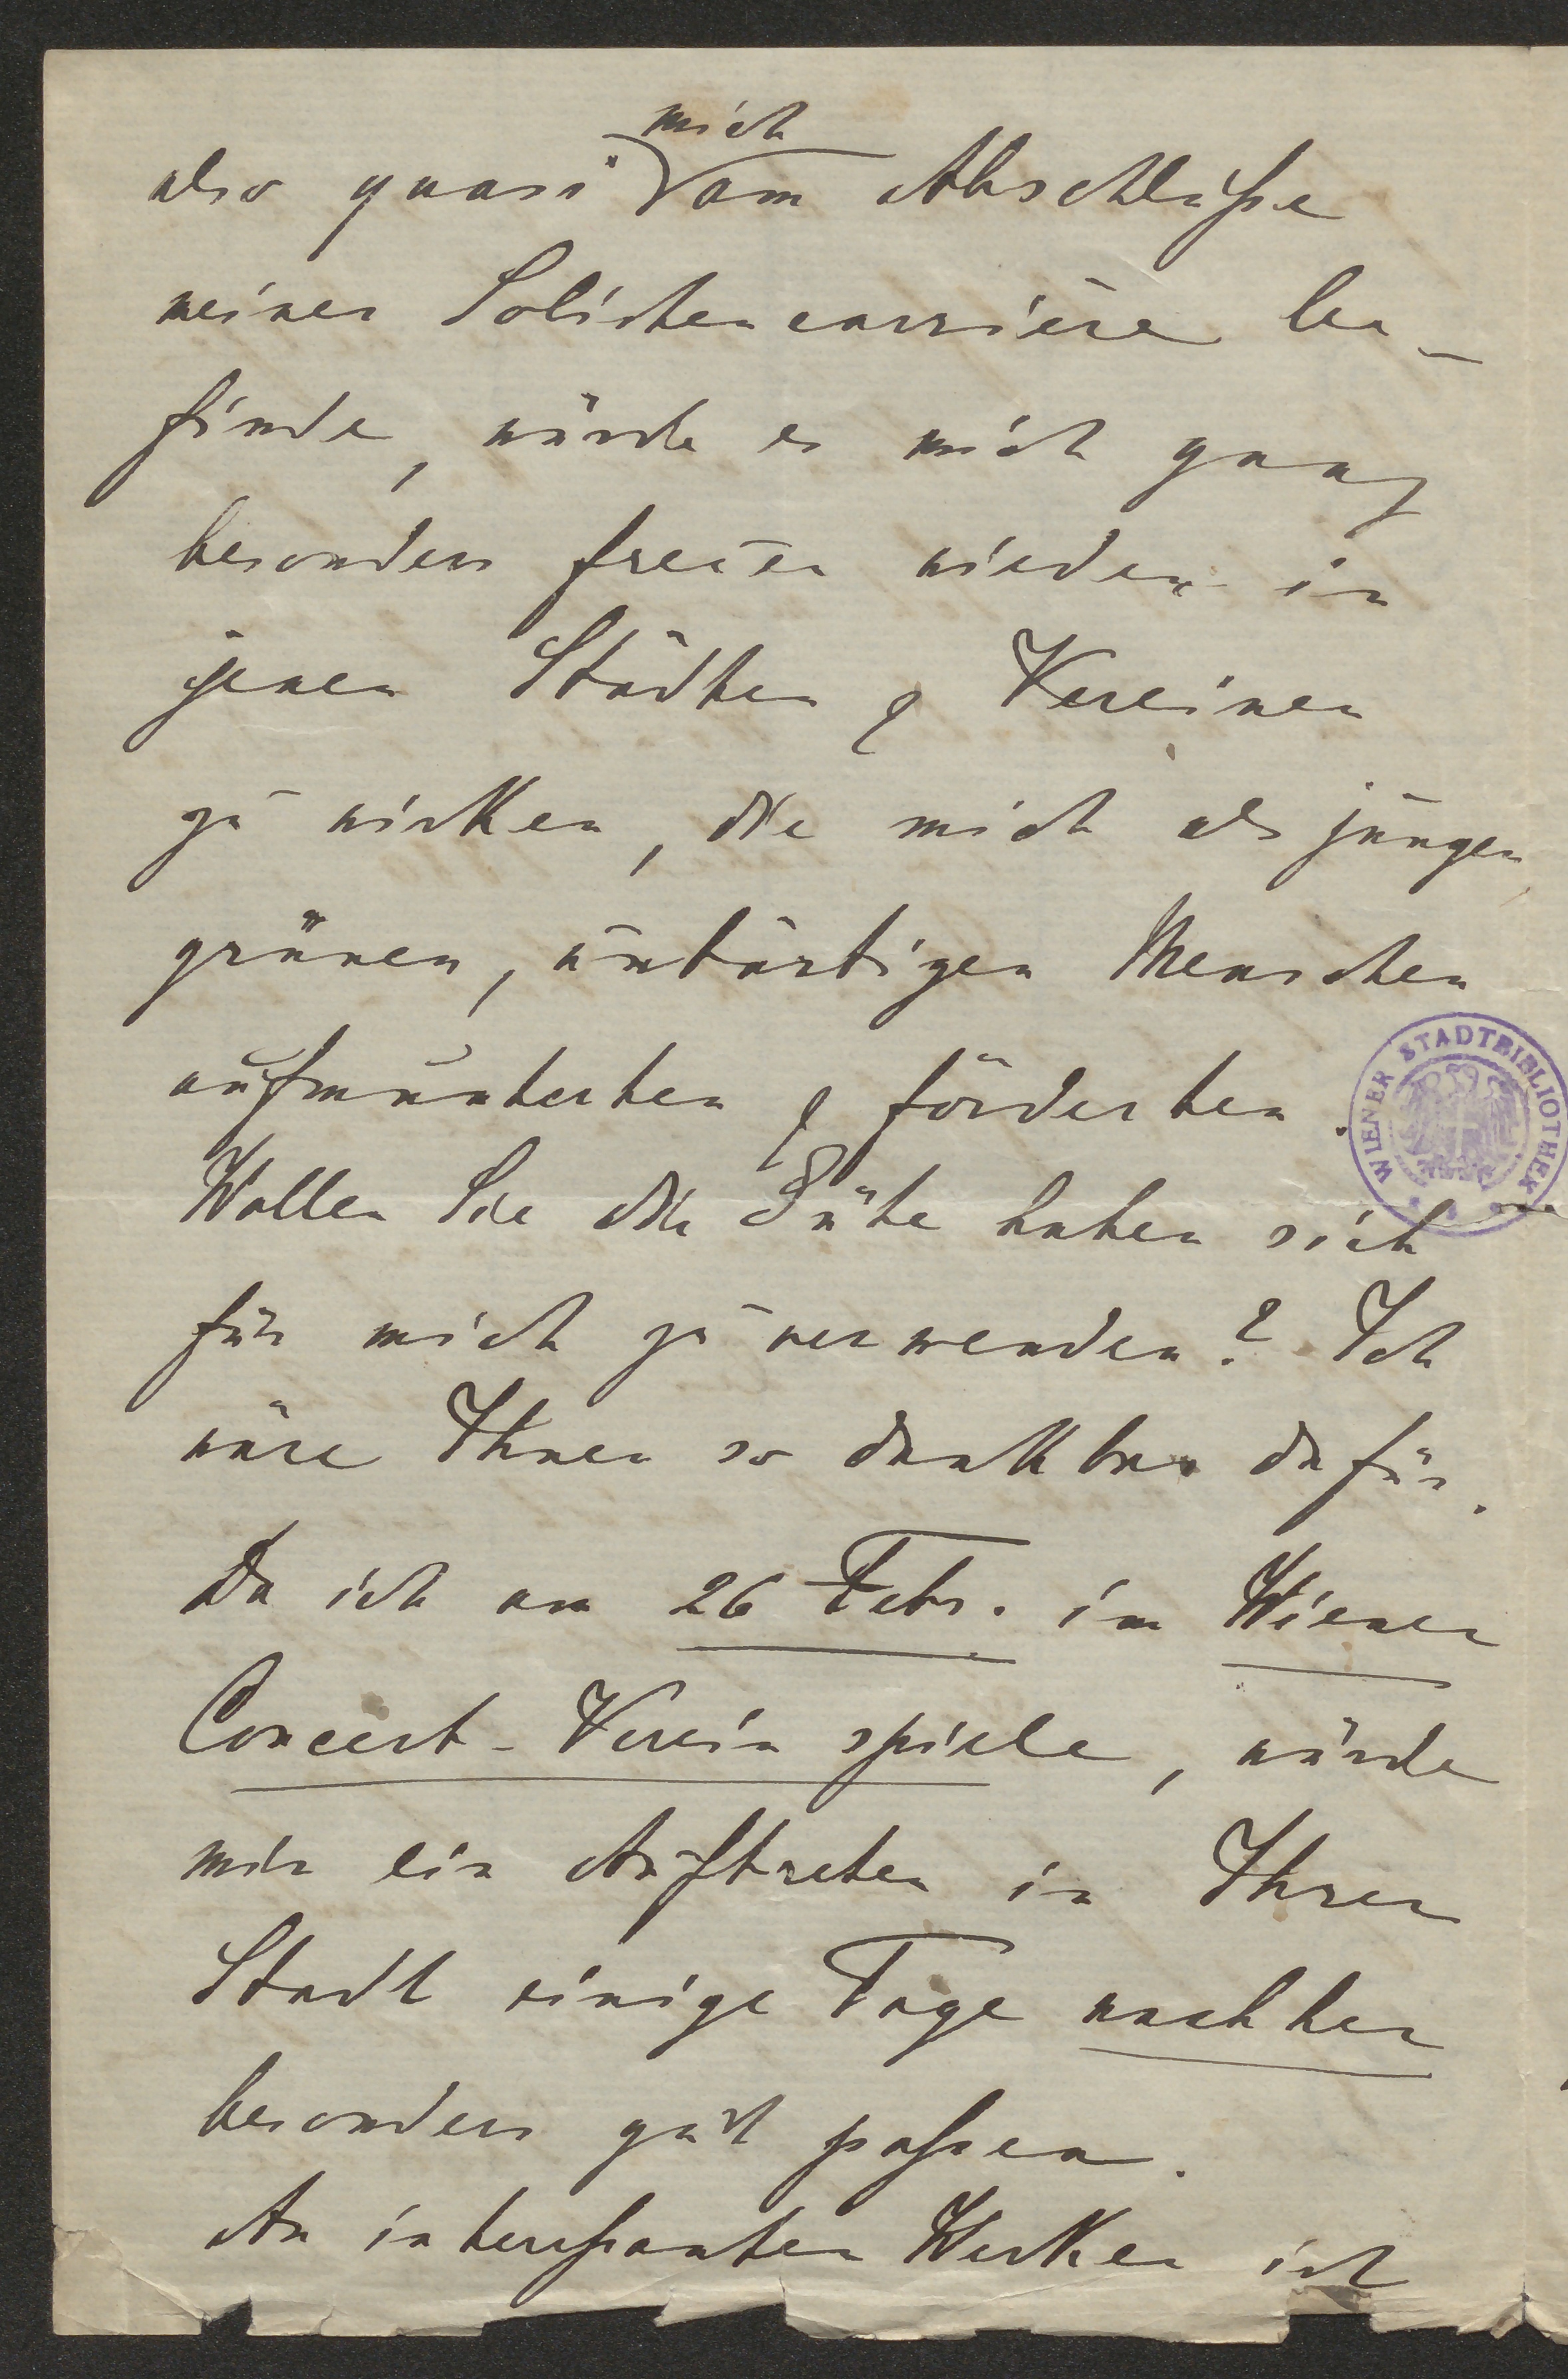 mich
also quasi am Abschluße
meiner Solistencarrière be-
finde, würde es mich ganz
besonders freuen wieder in
jenen Städten & Vereinen
zu wirken, die mich als jungen
grünen, unbärtigen Menschen
aufmunterten & förderten.
Wollen Sie die Güte haben sich
für mich zu verwenden? Ich
wäre Ihnen so dankbar dafür.
Da ich am 26 Febr. im Wiener
Concert-Verein spiele, würde
mir ein Auftreten in Ihrer
Stadt einige Tage nachher
besonders gut paßen.
An intereßanten Werken ist
WIENER STADTBIBLIOTHEK